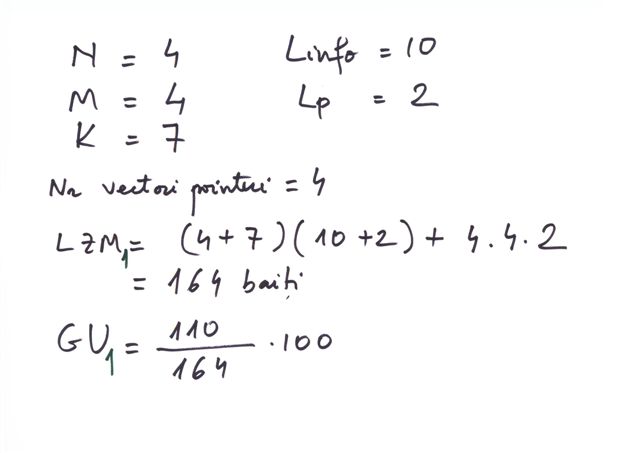 N = 4 Linfo = 10
M = 4 Lp = 2
K = 7
Nr vectori pointeri = 4
LZM1 = (4+7)(10+2) + 4.4.2
= 164 baiți
GU1 = 110/164 .100